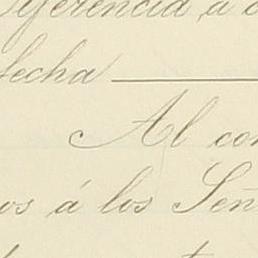 diferencia á
fecha
Al con
os á los Señ